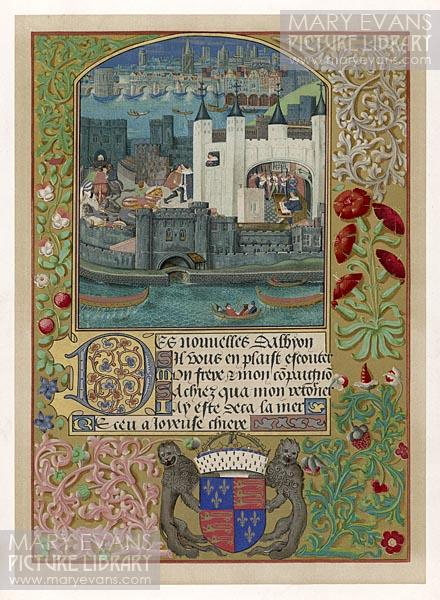 MARY EVANS
PICTURE LIBRARY
www.maryevans.com
Des nouvelles dalbyon
Sil vous en plaist escouter
Mon frere & mon compaignon
Sachiez qua mon retorner
Jay este deca la mer
Receu a Joyeuse chiere
MARY EVANS
PICTURE LIBRARY
www.maryevans.com
MARY EVANS
PICTURE LIBRARY
www.maryevans.com